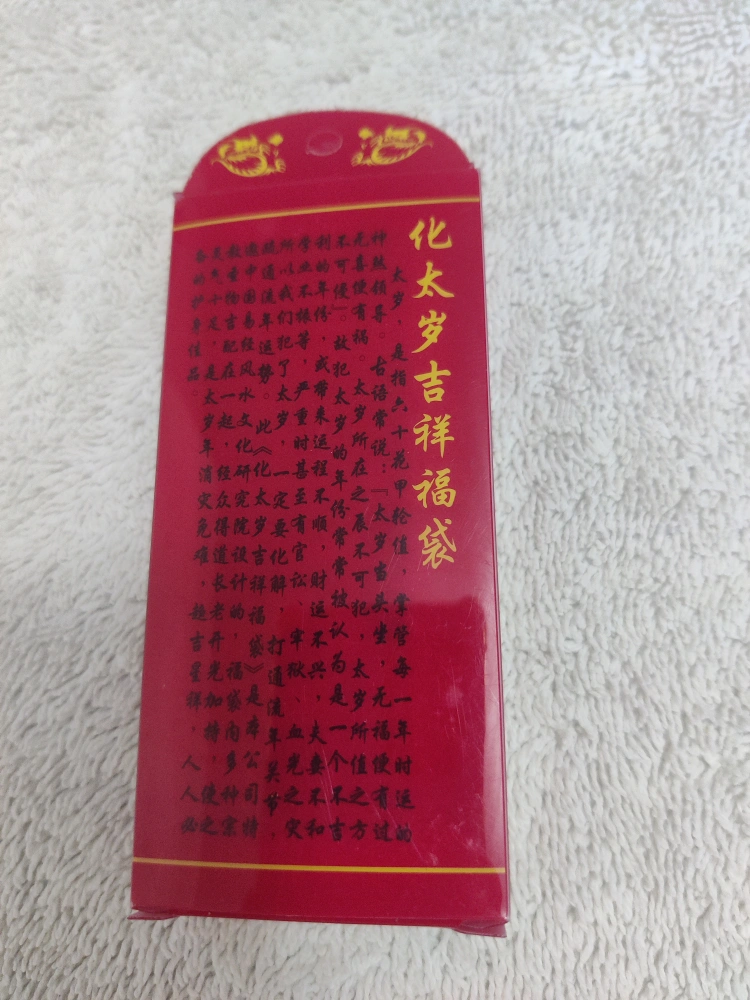 化太岁吉祥福袋
太岁，是指六十花甲轮值，掌管每一年时运的
神煞领导。古语常说：『太岁当头坐，无福便有过
无喜便有祸。太岁所在之辰不可犯，太岁所值之方
不可侵』。故犯太岁的年份常常被认为是一个不吉
利的年份，或带来运程不顺，财运不兴，夫妻不和
学业不振等，严重时甚至有官讼、牢狱、血光之灾
所以我们犯了太岁，一定要化解，打通流年关节，
疏通流年运势。此《化太岁吉祥福袋》是本公司特
邀中国易经风水文化研究院设计的，福袋内多种宗
教圣物吉配在一起，经众得道长老开光加持，使之
灵气十足，是太岁年消灾免难，趋吉星祥，人人必
备的护身佳品。